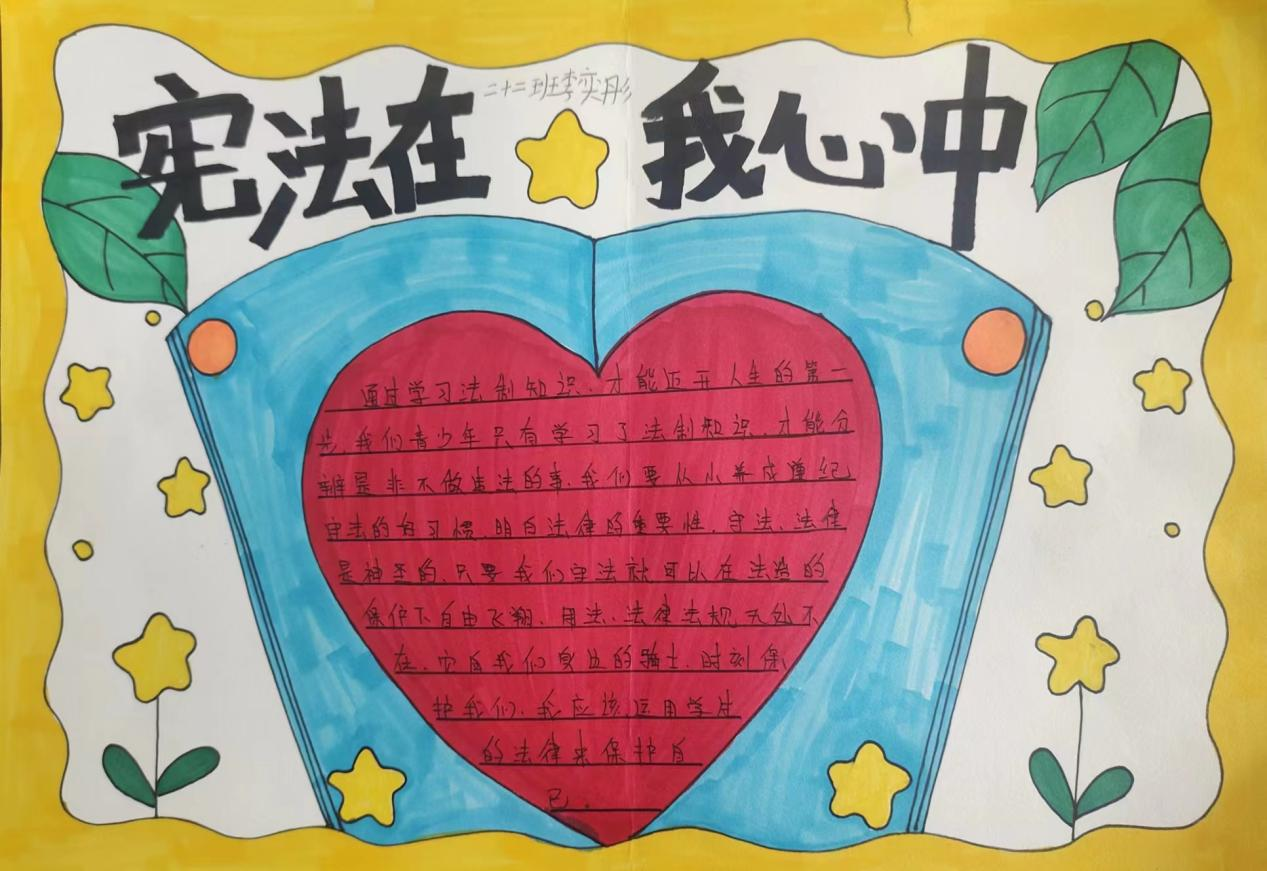 二十二班李奕彤
宪法在 我心中
通过学习法制知识,才能迈开人生的第一
步,我们青少年只有学习了法制知识,才能分
辨是非不做违法的事,我们要从小养成遵纪
守法的好习惯,明白法律的重要性,守法、法律
是神圣的,只要我们守法就可以在法治的
保护下自由飞翔,用法、法律法规无处不
在,它自我们身边的骑士,时刻保
护我们,我应该运用学过
的法律来保护自
己。